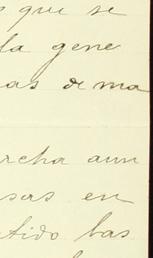 s que se
la gene
as de ma
rcha aun
sas en
tido bas